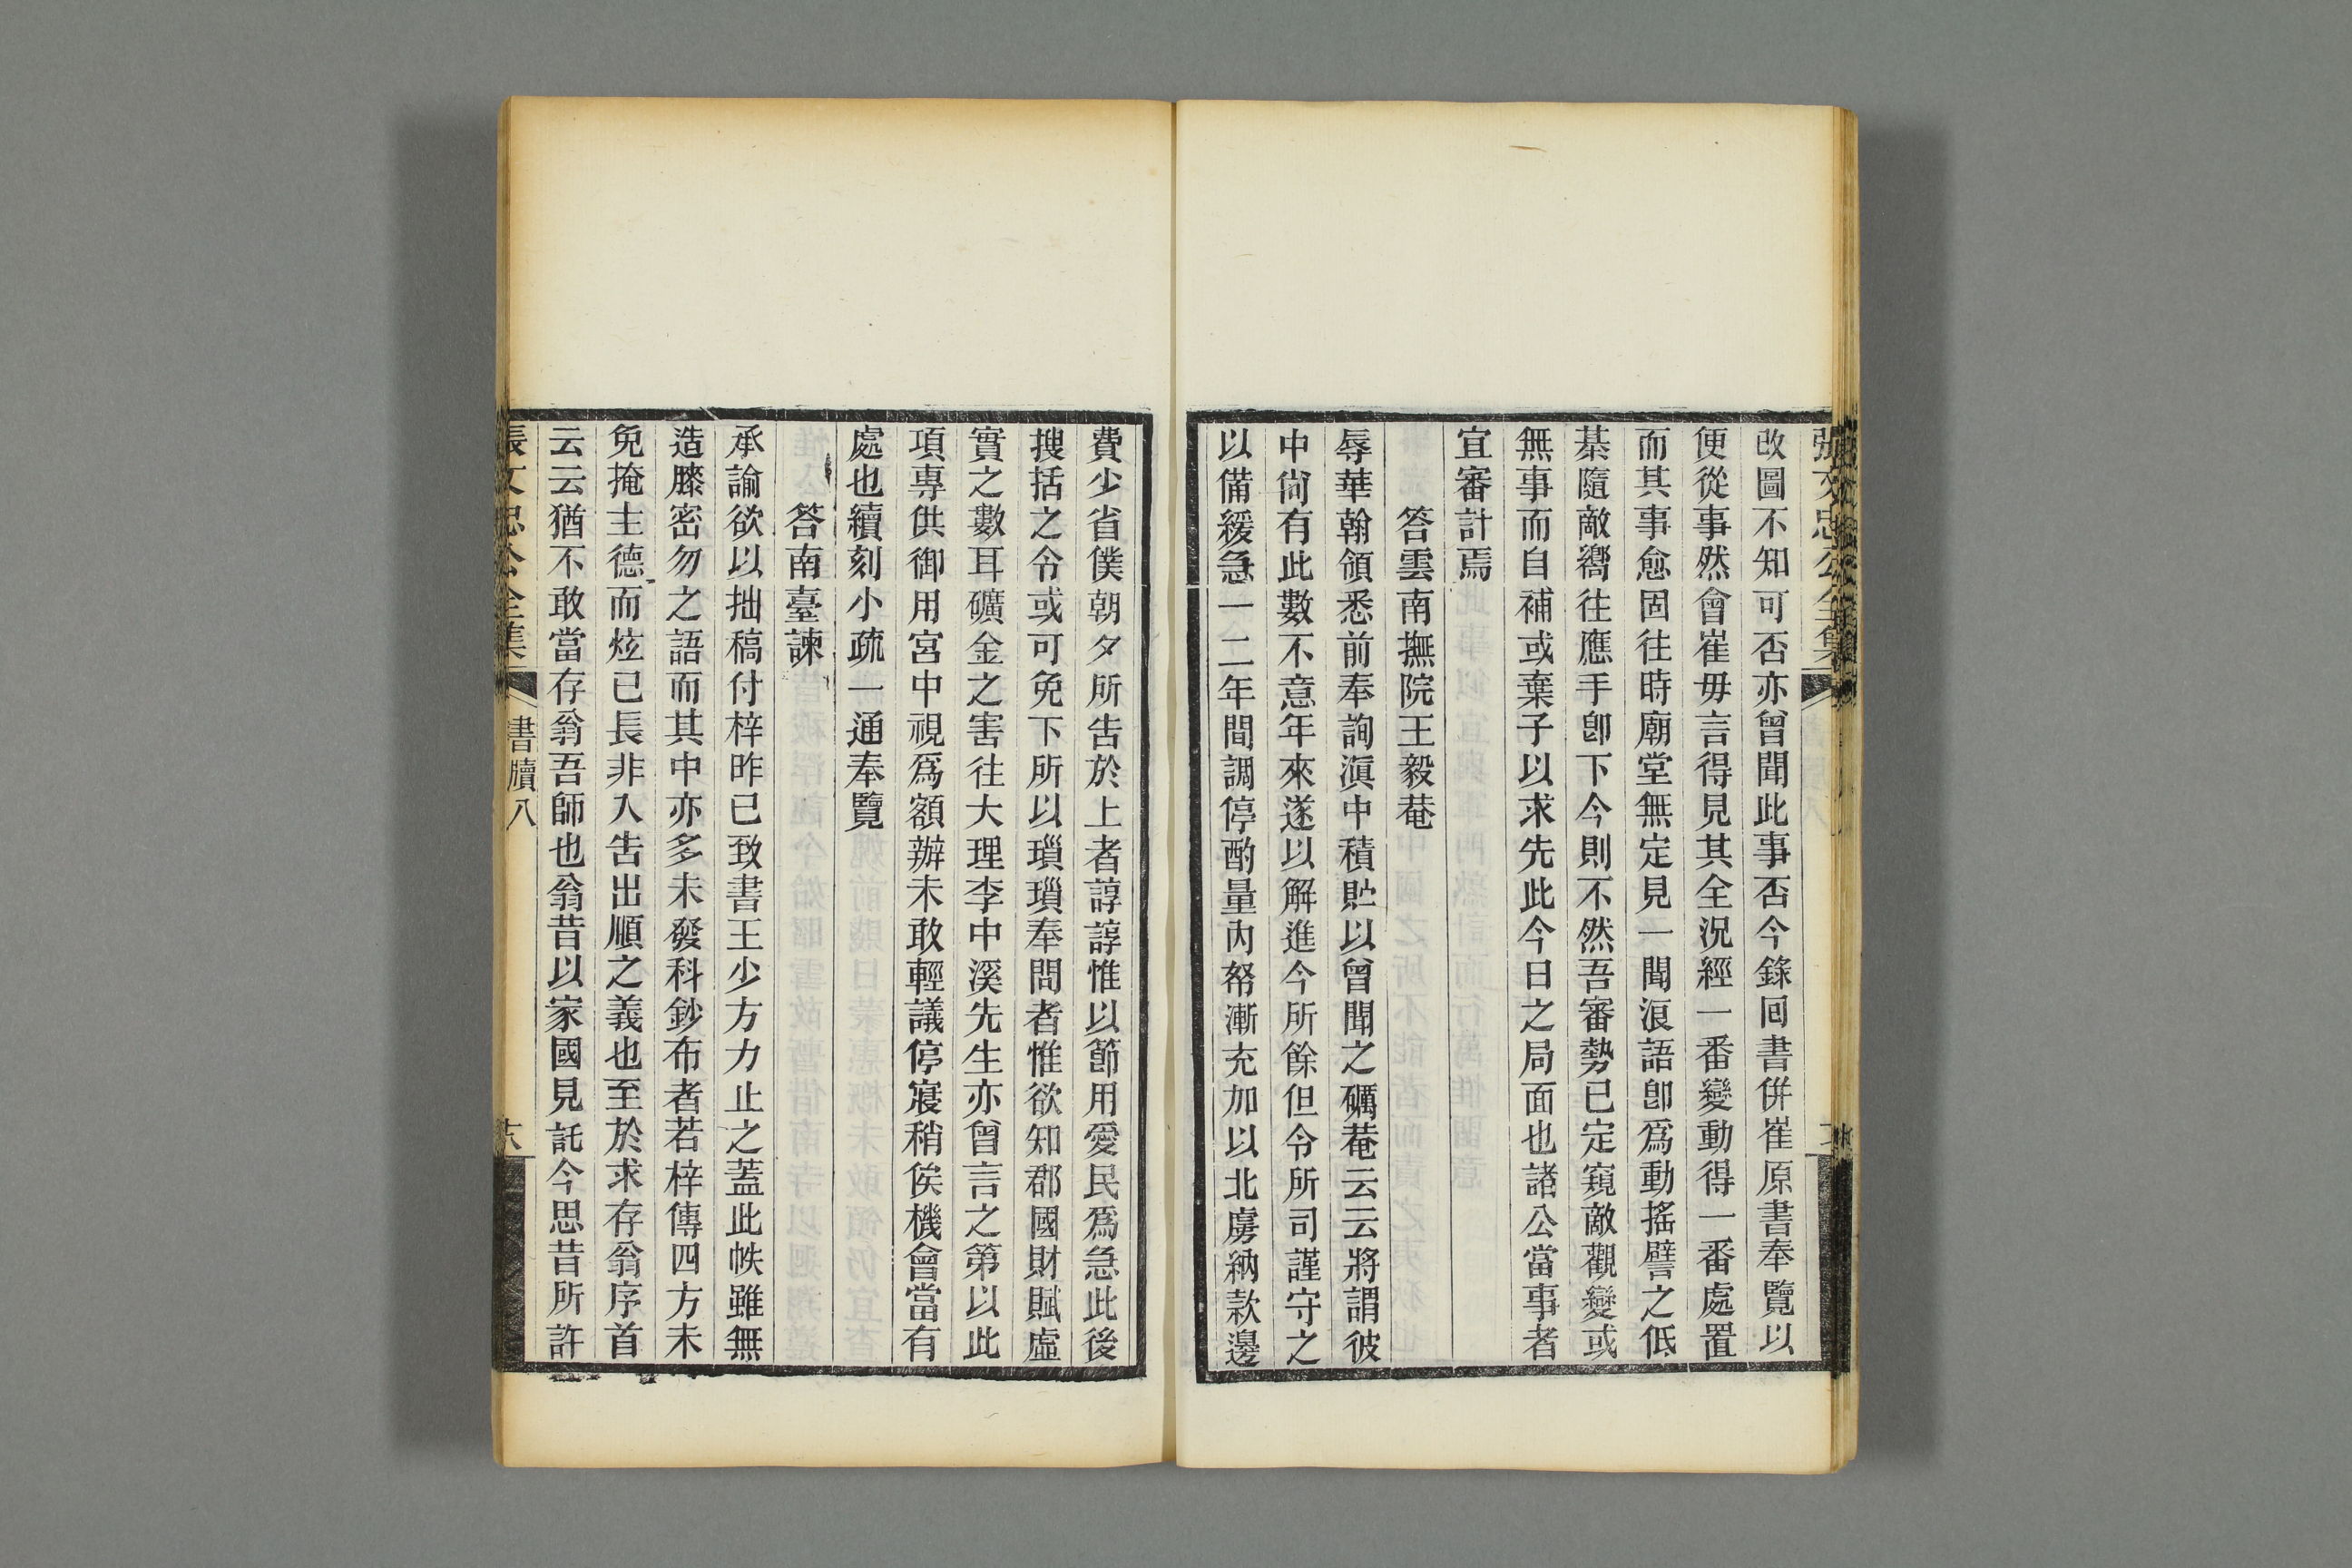 張文忠公全集
改圖不知可否亦曾聞此事否今錄回書併崔原書奉覽以
便從事然會崔毋言得見其全況經一番變動得一番處置
而其事愈固往時廟堂無定見一聞浪語卽爲動搖譬之低
棊隨敵嚮往應手卽下今則不然吾審勢已定窺敵觀變或
無事而自補或棄子以求先此今日之局面也諸公當事者
宜審計焉
答雲南撫院王毅菴
辱華翰領悉前奉詢滇中積貯以曾聞之礪菴云云將謂彼
中尙有此數不意年來遂以解進今所餘但令所司謹守之
以備緩急一二年間調停酌量內帑漸充加以北虜納款邊
費少省僕朝夕所告於上者諄諄惟以節用愛民爲急此後
搜括之令或可免下所以瑣瑣奉問者惟欲知郡國財賦虛
實之數耳礦金之害往大理李中溪先生亦曾言之第以此
項專供御用宮中視爲額辦未敢輕議停寢稍俟機會當有
處也續刻小疏一通奉覽
答南臺諫
承諭欲以拙稿付梓昨已致書王少方力止之蓋此帙雖無
造膝密勿之語而其中亦多未發科鈔布者若梓傳四方未
免掩主德而炫已長非入告出順之義也至於求存翁序首
云云猶不敢當存翁吾師也翁昔以家國見託今思昔所許
張文忠公全集
書牘八